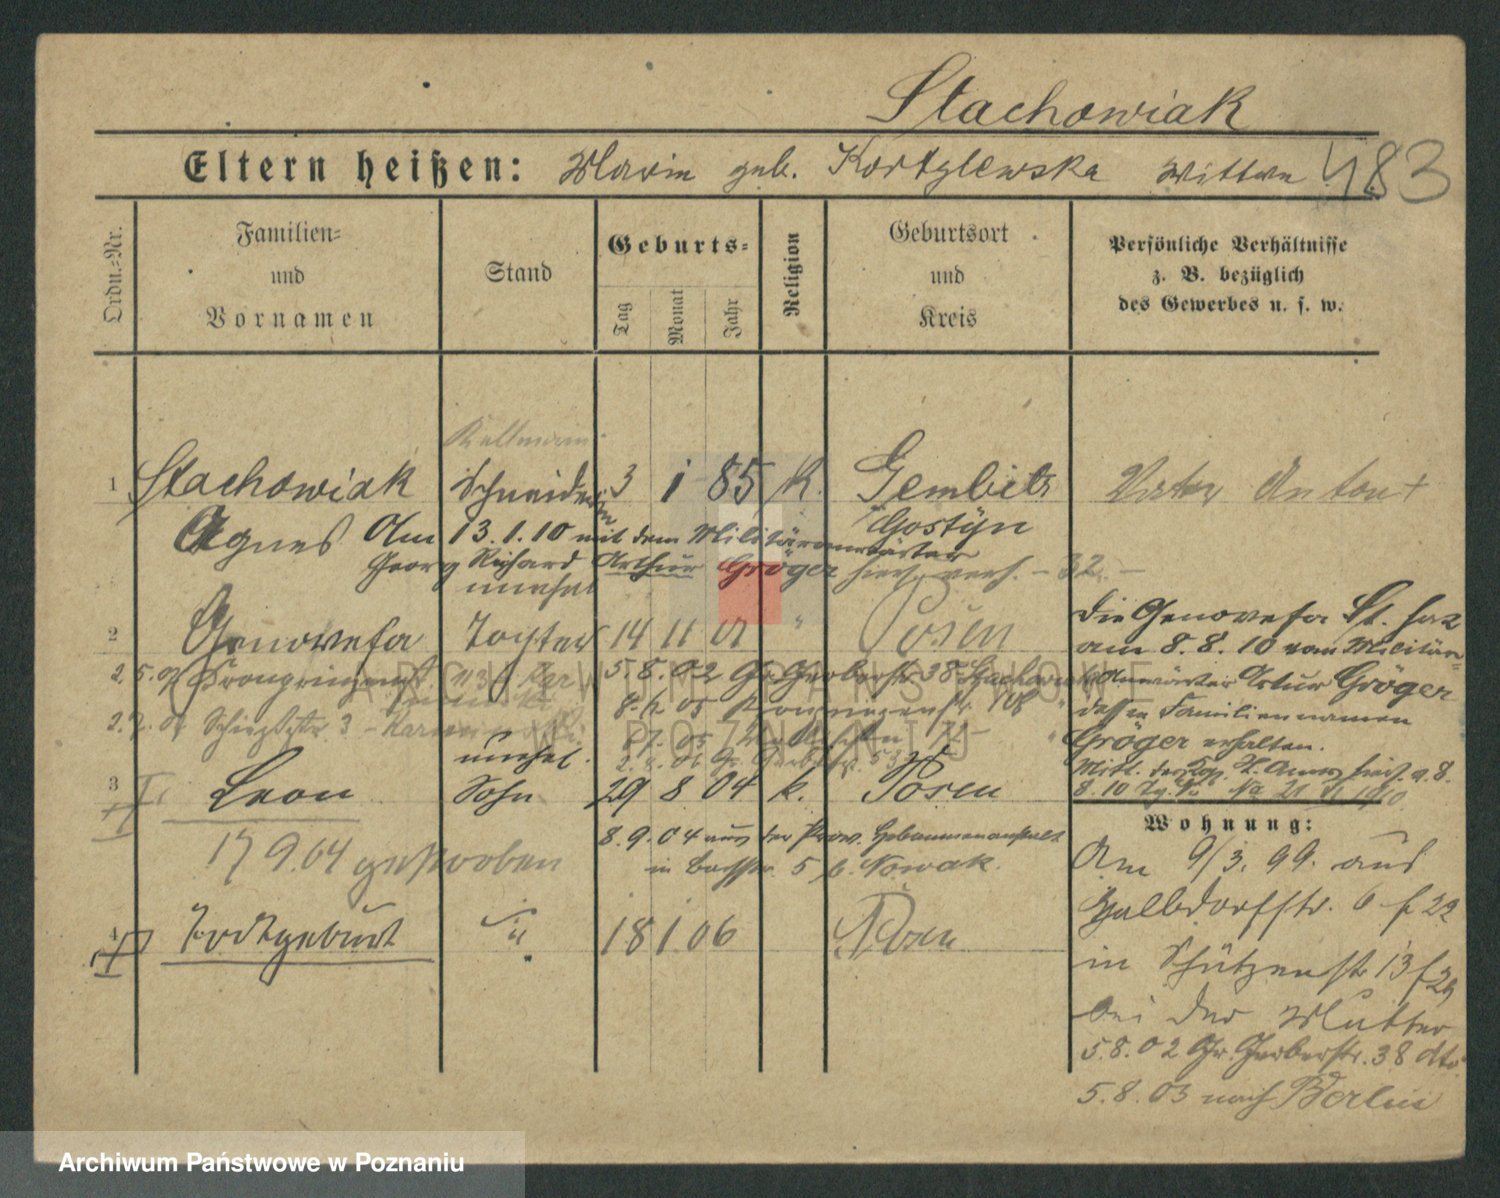 Stachowiak
Eltern heißen: Marie geb. Kortylewska Wittwe 483
Ordn.-Nr.
Familien-
und
Vornamen
Stand
Geburts-
Tag
Monat
Jahr
Religion
Geburtsort
und
Kreis
Persönliche Verhältnisse
z. B. bezüglich
des Gewerbes u. s. w.
Kellnerin
1 Stachowiak Schneiderin 3 1 85 K. Gembitz Vater Anton †
Gostyn
Agnes Am 13.1.10 mit dem Militäranwärter
Georg Richard Arthur Gröger hier verh. - 32. -
unehel
2 Genowefa Tochter 14 11 01 " Posen
Die Genovefa St. hat
am 8.8.10 vom Militär-
Anwärter Artur Gröger
dessen Familiennamen
Gröger erhalten.
5.8.02 Gr. Gerberstr. 38
8.6.05
unehel.
3 Leon Sohn 29 8 04 k. Posen
8.9.04 aus der Prov. Hebammenanstalt
in 5 b. Nowak.
17 9.04 gestorben
4 Todtgeburt " 18 1 06 Posen
Wohnung:
Am 9/3. 99. aus
Halbdorfstr. 6 f 22
in Schützenstr 13 f
bei der Mutter
5.8.02 Gr. Gerberstr. 38 dto
5.8.03 nach Berlin
ARCHIWUM PAŃSTWOWE
W POZNANIU
Archiwum Państwowe w Poznaniu